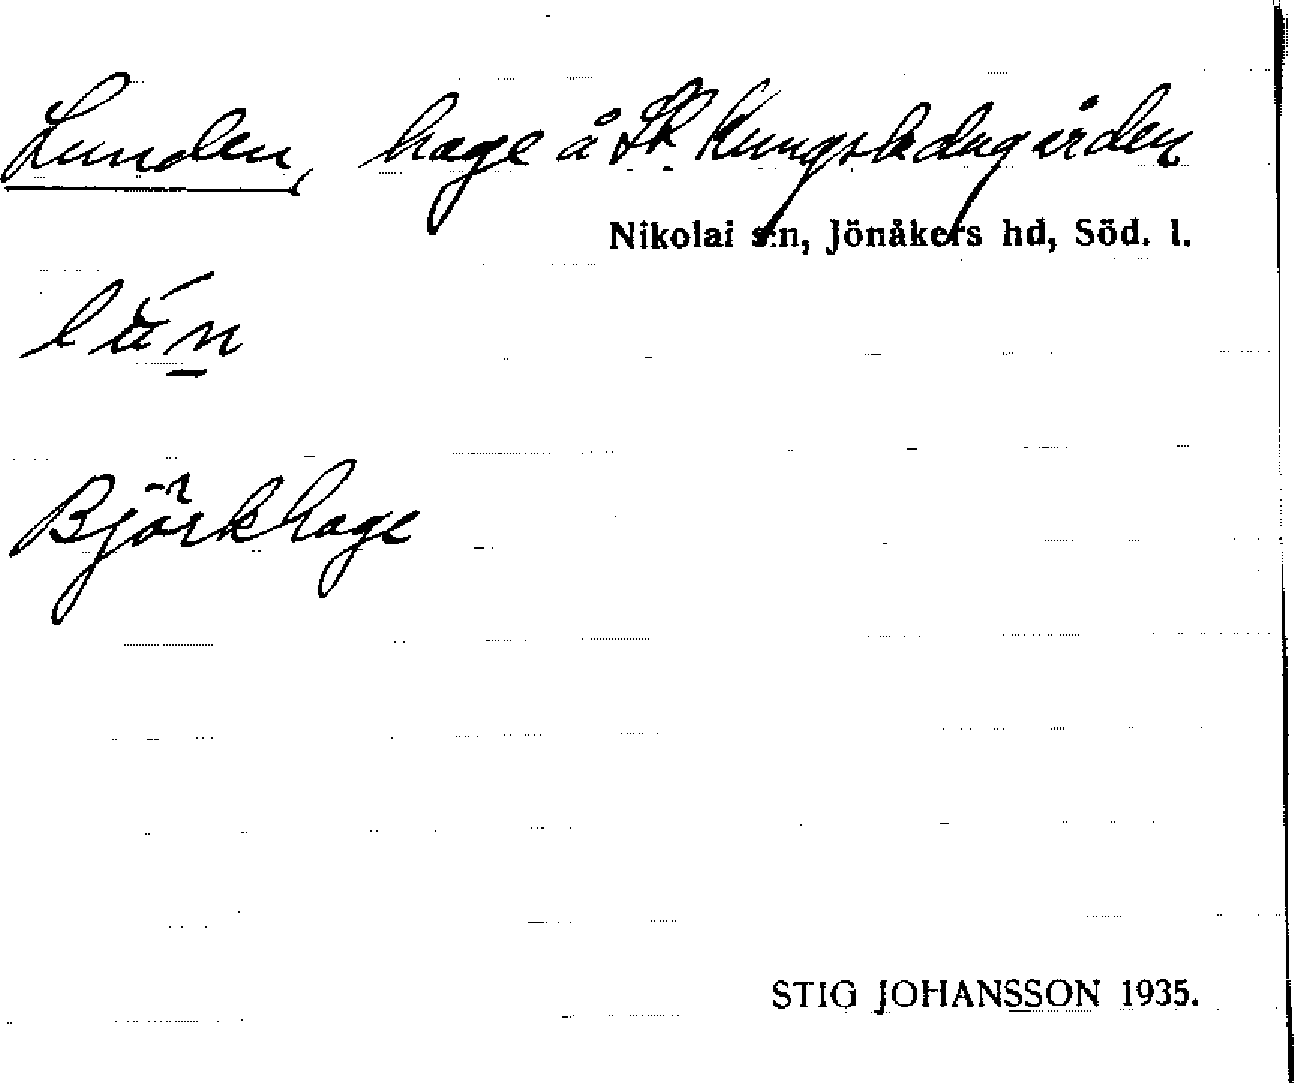 Lunden, hage å St. Kungsladugården
Nikolai s:n, Jönåkers hd, Söd. l.
Björkhage
STIG JOHANSSON 1935.